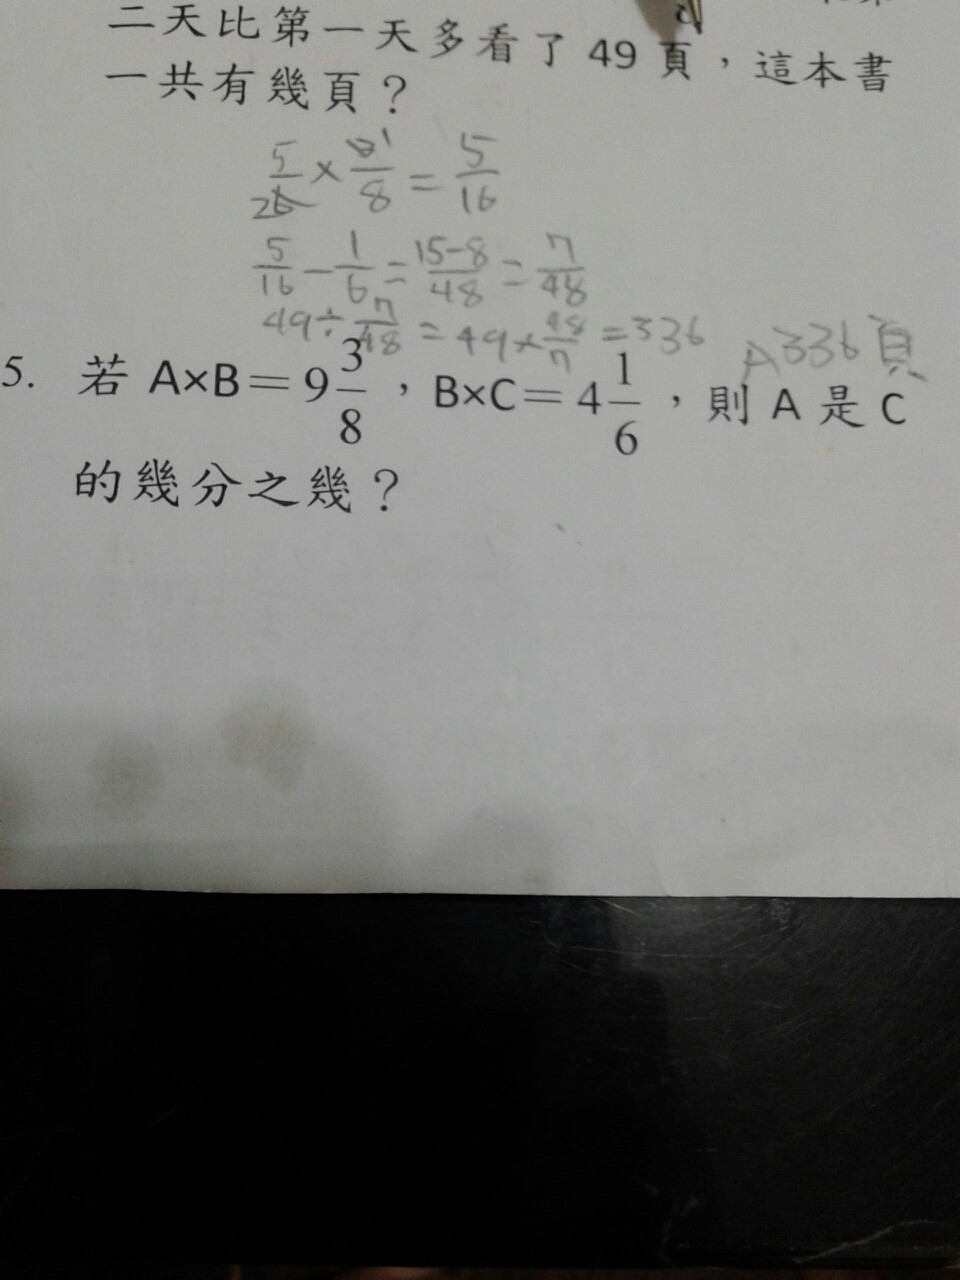 二天比第一天多看了 49 頁，這本書
一共有幾頁？
5/26 × 8 = 5/16
5/16 - 1/6 = 15-8/48 = 7/48
49 ÷ 7/48 = 49 × 48/7 = 336 A 336頁
5. 若 A×B＝9 3/8，B×C＝4 1/6，則 A 是 C
的幾分之幾？